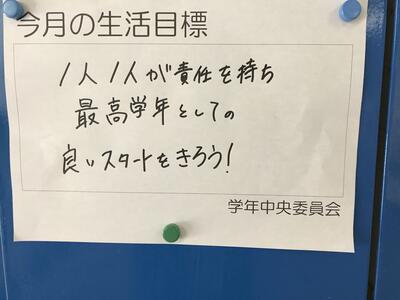 今月の生活目標
1人1人が責任を持ち
最高学年としての
良いスタートをきろう!
学年中央委員会